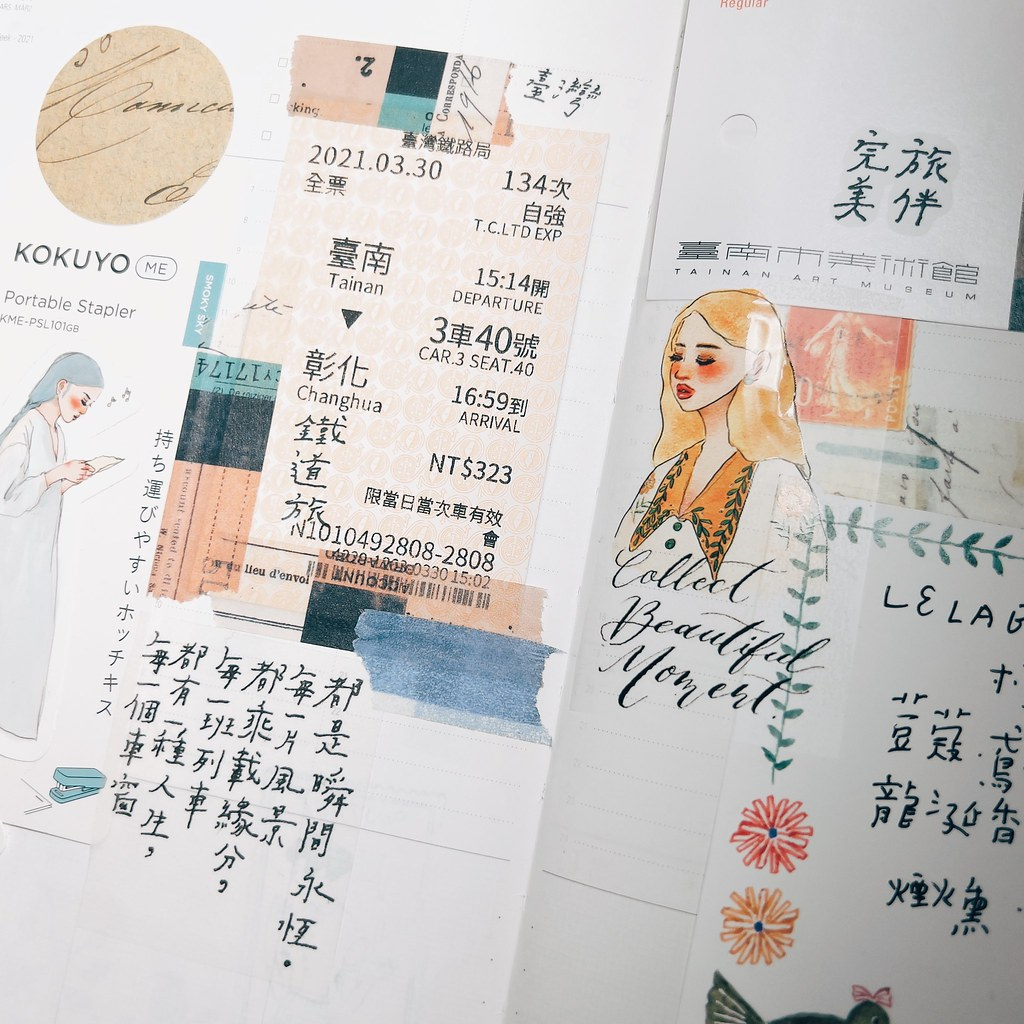 Regular
臺灣
2.
king
CORRESPONDA
1916
臺灣鐵路局
2021.03.30
134次
全票
自強
T.C.LTD EXP
臺南
Tainan
15:14開
DEPARTURE
3車40號
CAR.3 SEAT.40
彰化
Changhua
16:59到
ARRIVAL
NT$323
限當日當次車有效
N1010492808-2808
鐵道旅
du lieu d'envoi
ACCOUNT
KOKUYO ME
Portable Stapler
KME-PSL101GB
SMOKY SKY
持ち運びやすいホッチキス
每一個車窗
都有一種人生，
每一班列車
都乘載緣分，
每一片風景
都是瞬間永恆。
完美
旅伴
臺南市美術館
TAINAN ART MUSEUM
Collect
Beautiful
Moment.
LELAB
豆蔻
鳶
龍涎香
煙火熏